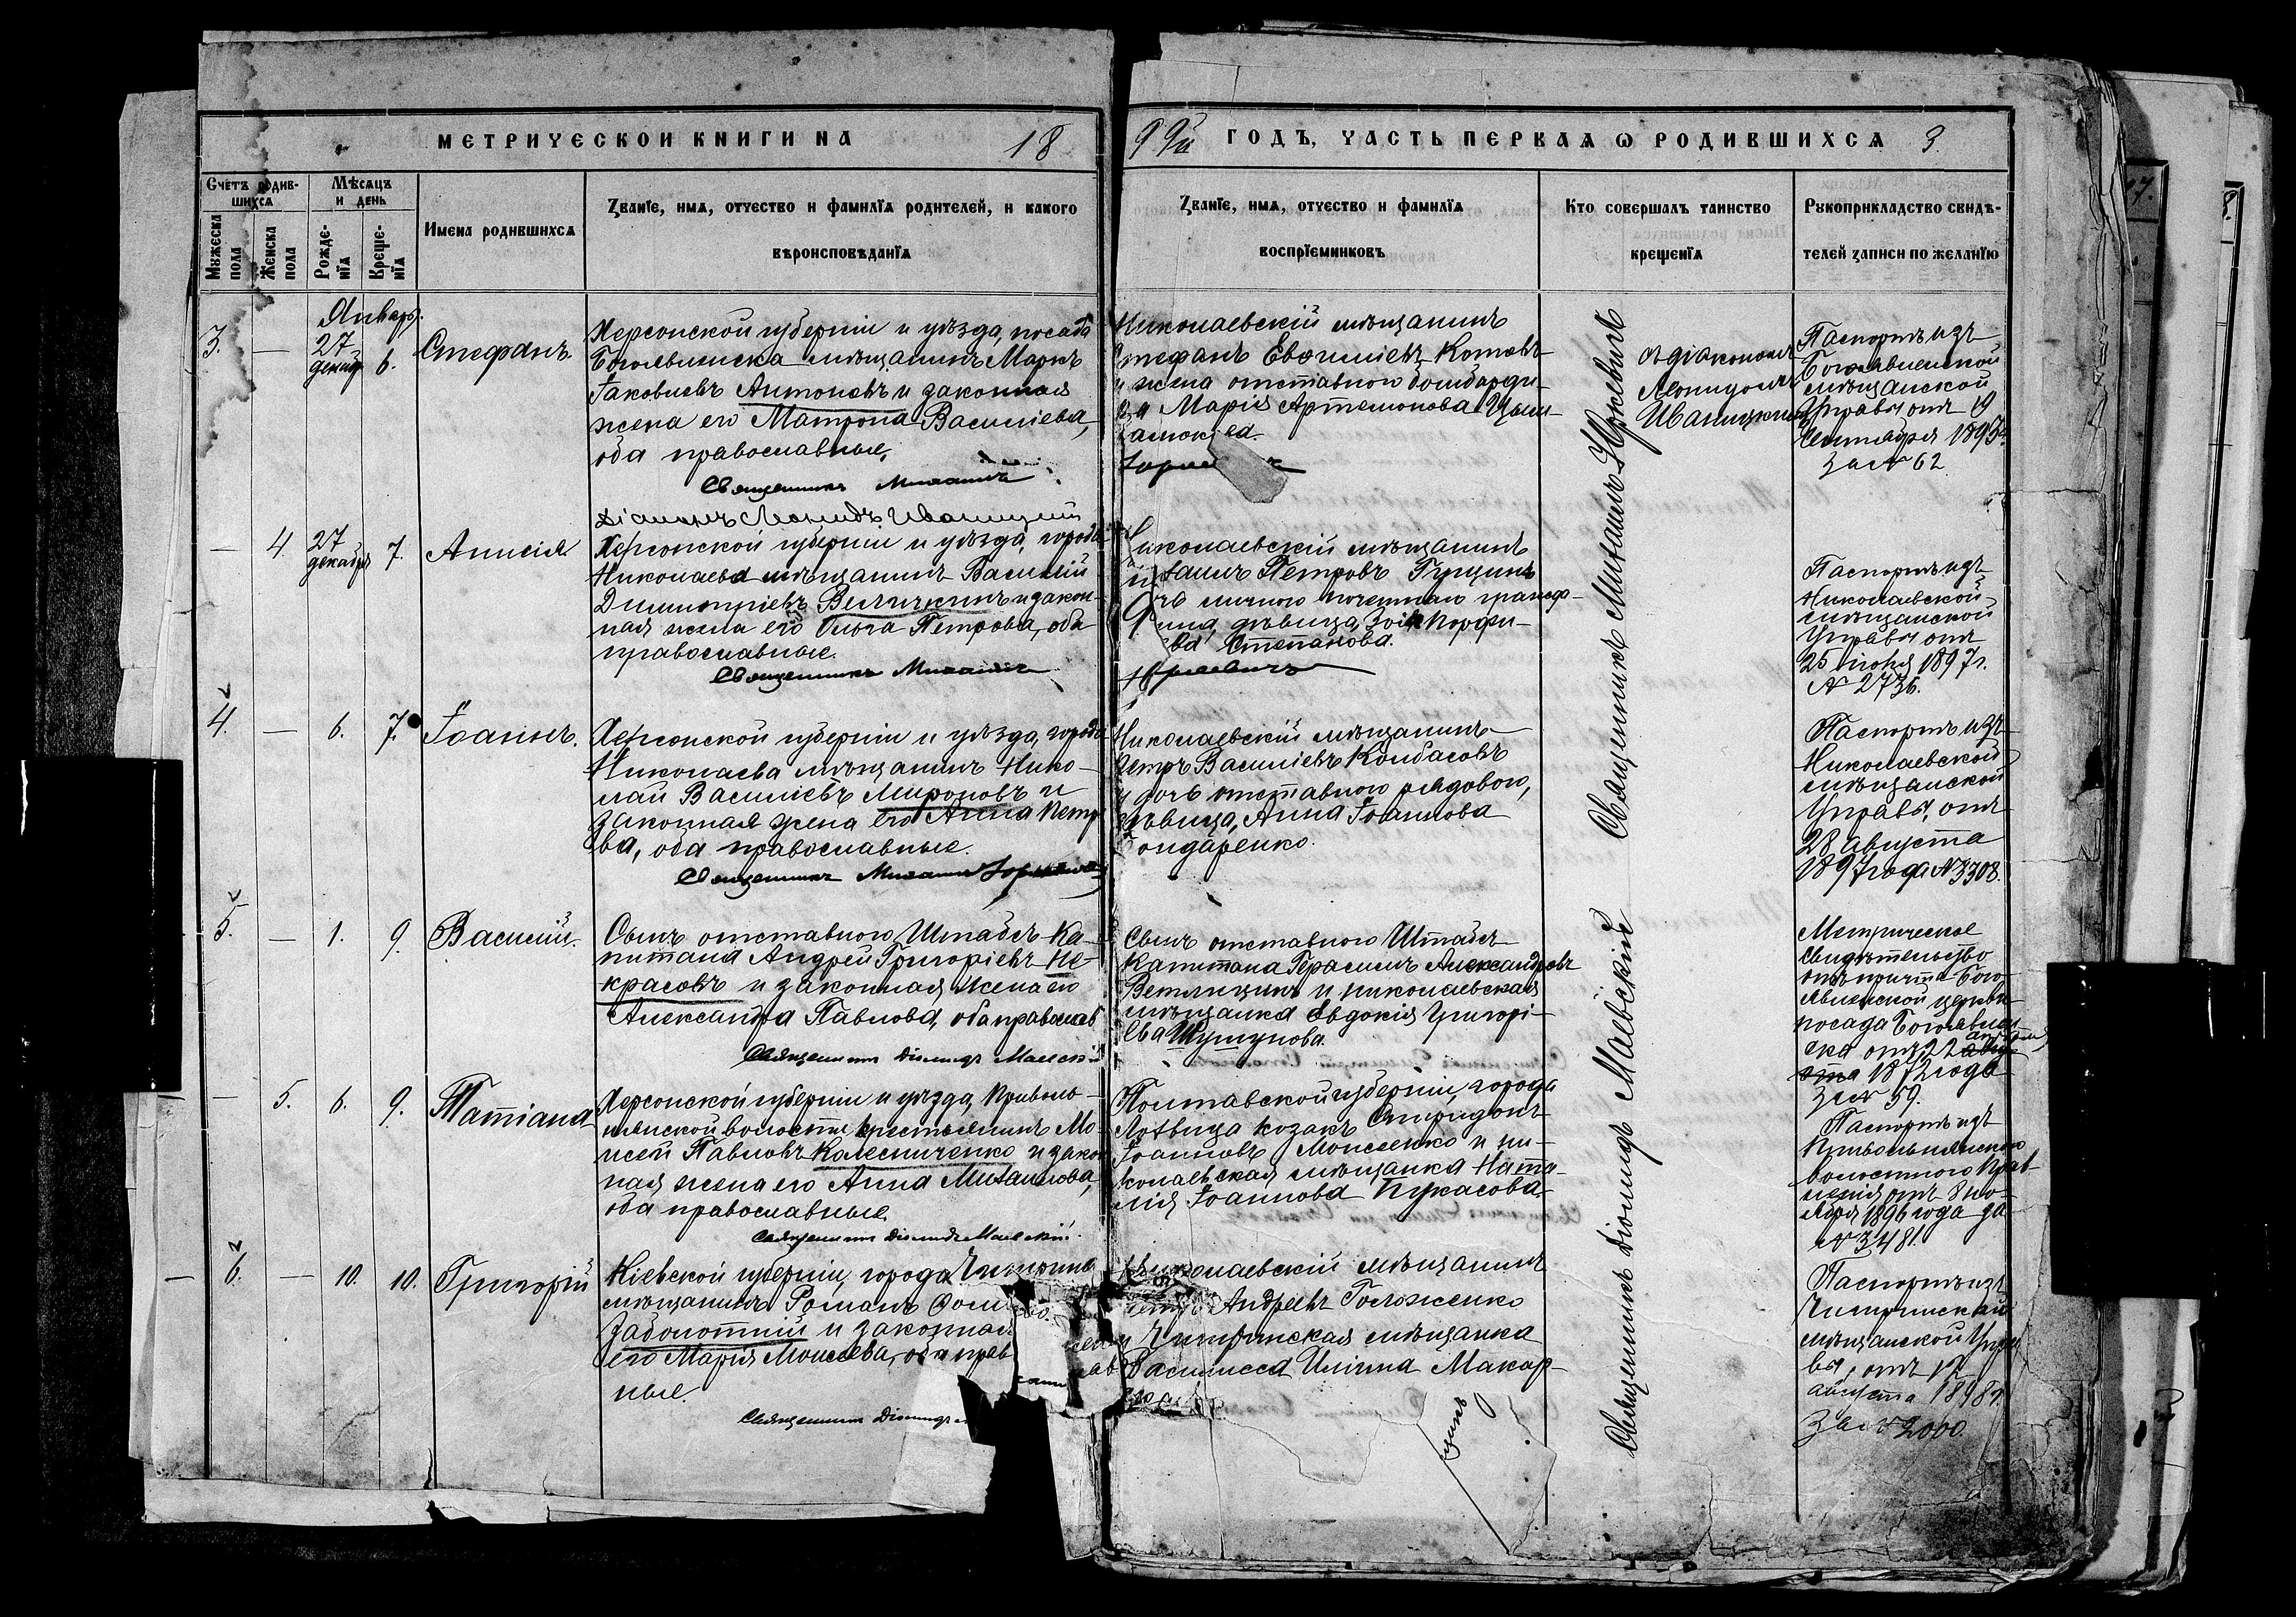 МЕТРИЧЕСКОЙ КНИГИ НА 18
99й ГОДЪ, ЧАСТЬ ПЕРВАЯ Ѡ РОДИВШИХСЯ 3
Счетъ родив-
шихся
Мѣсяцъ
и день
Мужеска
пола
Женска
пола
Рожде-
нїя
Креще-
нїя
Имена родившихся
Званїе, имя, отчество и фамилїя родителей, и какого
вѣроисповѣданїя
Званїе, имя, отчество и фамилїя
воспрїемниковъ
Кто совершалъ таинство
крещенїя
Рукоприкладство свидѣ-
телей записи по желанїю
Январь.
3.
—
27
декаб
6.
Стефанъ
Херсонской губерніи и уѣзда, посада
Богоявленска мѣщанинъ Маркъ
Іаковлевъ Антоновъ и законная
жена его Матрона Василіева,
оба православные.
Священникъ Михаилъ
Діаконъ Леонидъ Иваницкій
Николаевскій мѣщанинъ
Стефанъ Евѳиміевъ Котовъ
и жена отставного бомбарди-
ра Марія Артемонова
съ діакономъ
Леонидомъ
Иваницкимъ
Паспортъ изъ
Богоявленской
мѣщанской
Управы отъ 19
Сентября 1895 г.
за № 62
—
4.
27
декабря
7.
Анисія
Херсонской губерніи и уѣзда, города
Николаева мѣщанинъ Василій
Димитріевъ Величкинъ и закон-
ная жена его Ольга Петрова, оба
православные.
Священникъ Михаилъ
Юркевичъ
Николаевскій мѣщанинъ
Петровъ Гущинъ
личного почетнаго гражда-
нина, дѣвица Зоя Порфи-
ева Степанова.
Паспортъ изъ
Николаевской
мѣщанской
Управы отъ
25 іюня 1897 г.
№ 2736.
4.
—
6.
7.
Іоаннъ.
Херсонской губерніи и уѣзда, города
Николаева мѣщанинъ Нико-
лай Василіевъ Мироновъ и
законная жена его Анна Петро
ва, оба православные.
Священникъ Михаилъ Юркевичъ
Николаевскій мѣщанинъ
Петръ Василіевъ Колбасовъ
и дочь отставного рядового,
дѣвица, Анна Іоаннова
Бондаренко.
Священникъ Михаилъ Юркевичъ
Паспортъ изъ
Николаевской
мѣщанской
Управы, отъ
28 августа
1897 года № 3308.
5.
—
1.
9.
Василій.
Сынъ отставного Штабсъ Ка-
питана Андрей Григоріевъ Не-
красовъ и законная жена его
Александра Павлова, оба православ
Священникъ Діомидъ Маевскій
Сынъ отставного Штабсъ
Капитана Герасимъ Александровъ
Ветлицынъ и николаевская
мѣщанка Евдокія Григорі-
ева Шушунова.
Метрическое
свидѣтельство
отъ причта Бого-
явленской церкви
посада Богоявлен
ска отъ 22
1872 года
за № 59.
—
5.
6.
9.
Татіана
Херсонской губерніи и уѣзда, Приволь-
нянской волости крестьянинъ Мо-
исей Павловъ Колесниченко и закон
ная жена его Анна Михаилова,
оба православные
Священникъ Діомидъ Маевскій.
Полтавской губерніи, города
Лохвица козакъ Спиридонъ
Іоанновъ Моисеенко и ни-
колаевская мѣщанка Ната-
лія Іоаннова
Паспортъ изъ
Привольнянскаго
волостного Прав-
ленія отъ 8 но-
ября 1896 года за
№ 3481.
6.
—
10.
10.
Григорій
Кіевской губерніи, города Чигирина
мѣщанинъ Романъ
Заболотній и законная
его Марія Моисеева, оба прав
ные.
Священникъ Діомидъ
Николаевскій мѣщанинъ
Петръ Андреевъ Голоженко
и Чигиринская мѣщанка
Василисса Иліина Макар-
Священникъ Діомидъ Маевскій
Паспортъ изъ
Чигиринской
мѣщанской Упра
вы, отъ 12
августа 1898 г.
за № 2000